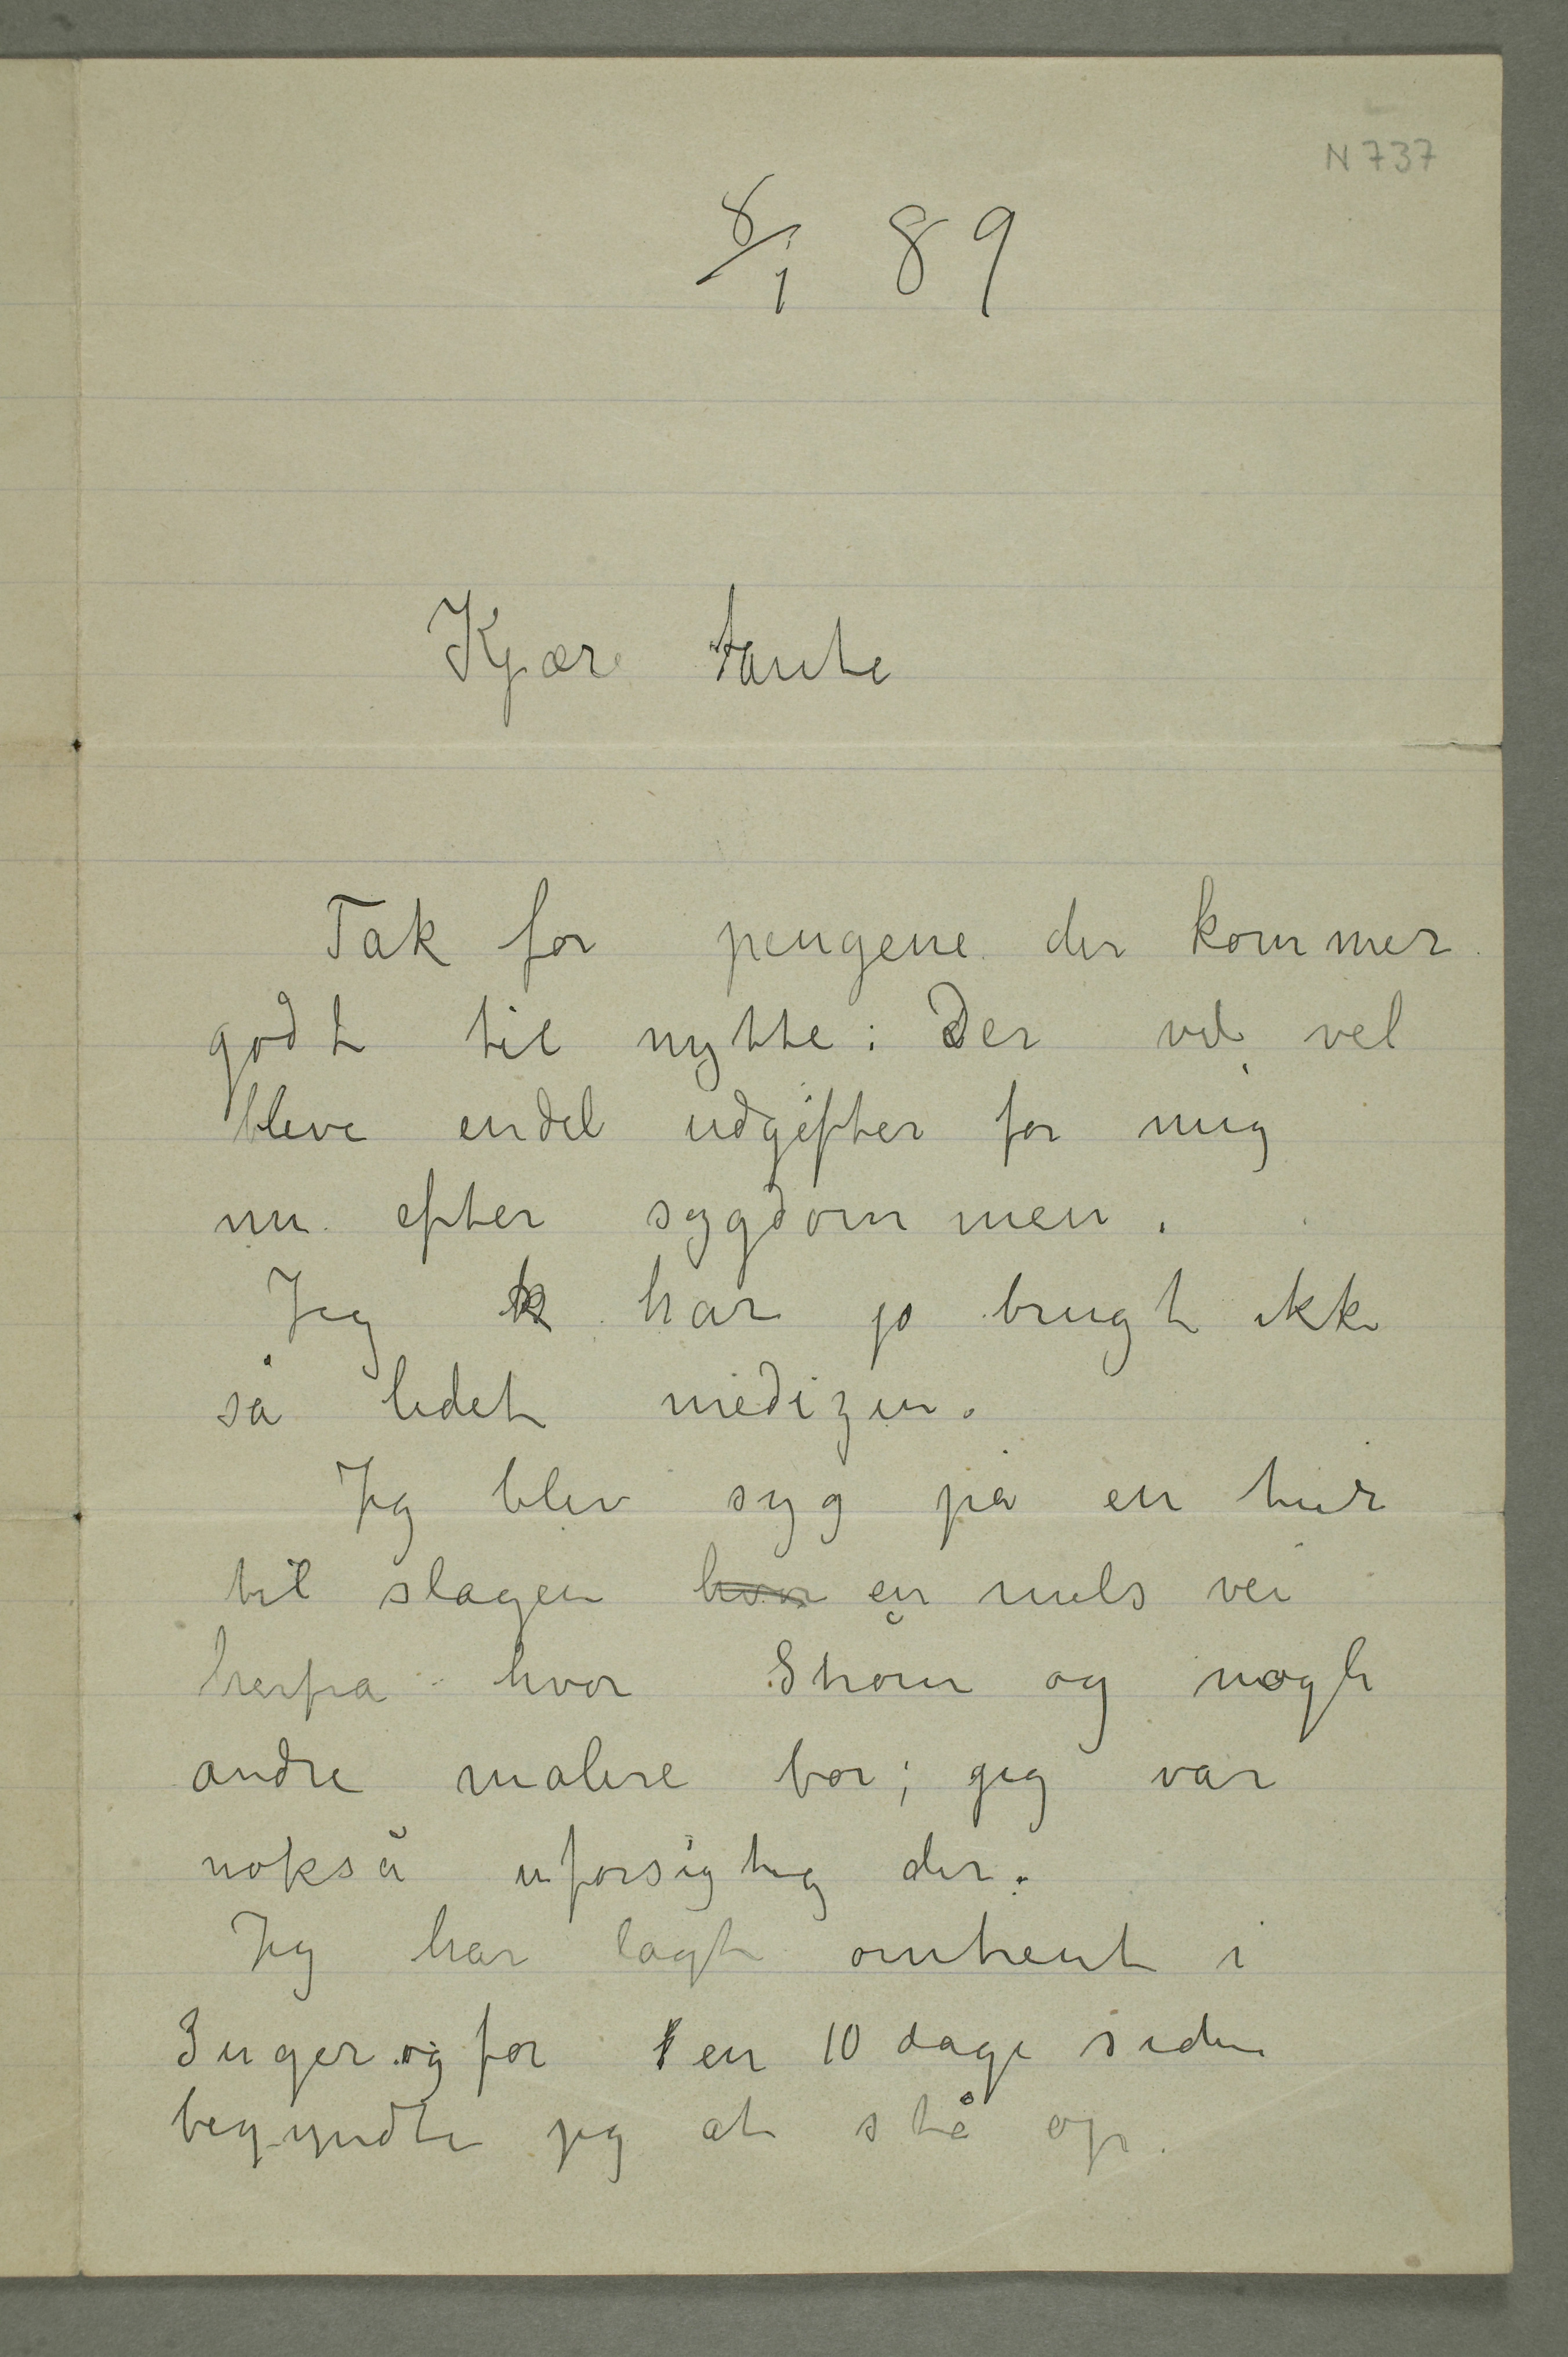 N 737
8/1 89
Kjære tante
Tak for pengene der kommer
godt til nytte: Der vil vel
blive endel udgifter for mig
nu efter sygdommen.
Jeg har jo brugt ikke
så lidet medizin.
Jeg blev syg på en tur
til slagen hvor en mils vei
herfra hvor Strøm og nogle
andre malere bor; jeg var
nokså uforsigtig der.
Jeg har lagt omtrent i
3 uger og for en 10 dage siden
begyndte jeg at stå op.